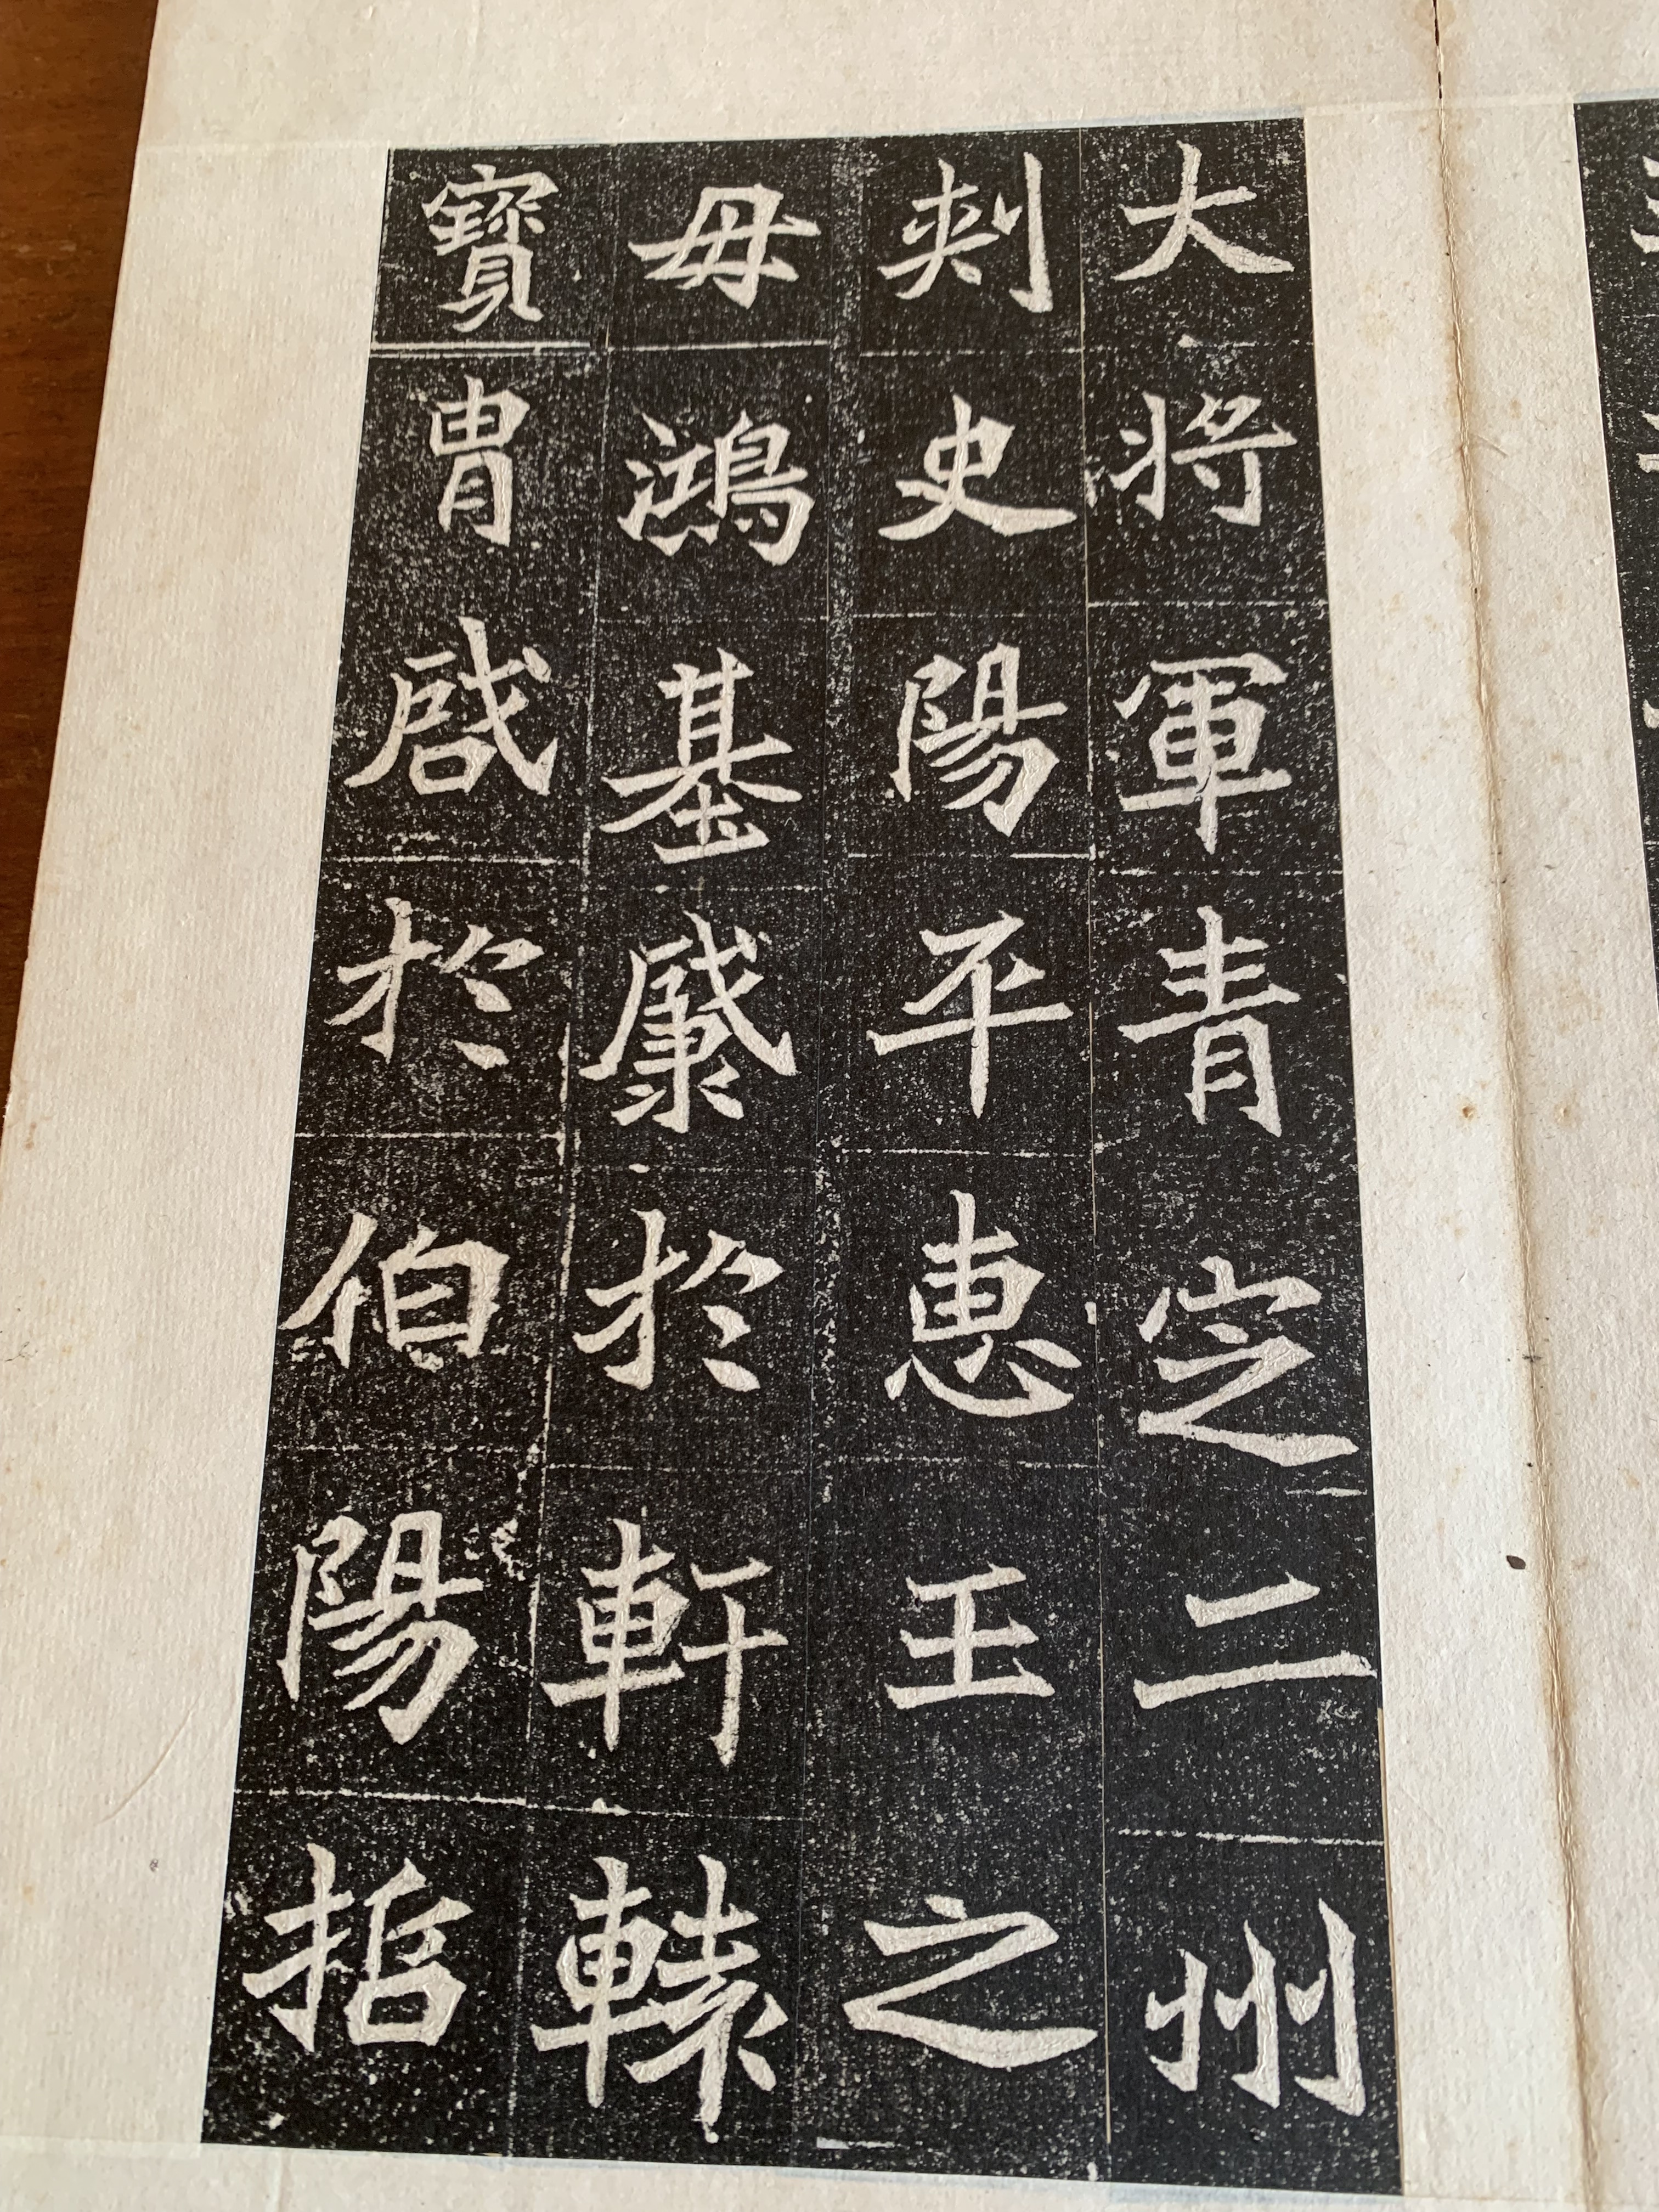 大將軍青定二州
刾史陽平惠王之
母鴻基肇於軒轅
寶胄啓於伯陽哲